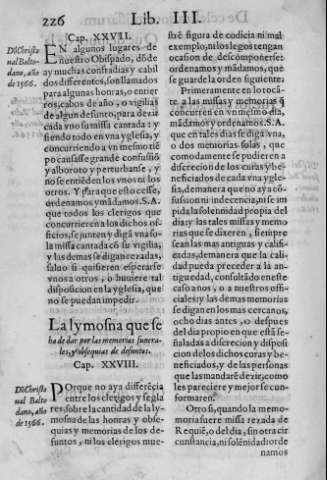 226 Lib. III.
Cap. XXVII.
Dō Christo
ual Balto-
dano, año
de 1566.
EN algunos lugares de
nuestro Obispado, dōde
ay muchas confradias y cabil
dos differentes, son llamados
para algunas honras, o entier
ros, cabos de año, o vigilias
de algun defunto, para dezir
cada vno su missa cantada: y
siendo todo en vna yglesia, y
concurriendo a vn mesmo tiē
po causasse grande confussiō
y alboroto y perturbasse, y
no se entiēden los vnos ni los
otros. Y para que esto cesse,
ordenamos y mādamos. S. A.
que todos los clerigos que
concurrieren a los dichos of-
ficios, se junten y digā vna so-
la missa cantada cō su vigilia,
y las demas se digan rezadas,
saluo si quisieren esperarse
vnos a otros, o huuiere tal
disposicion en la yglesia, que
no se puedan impedir.
La lymosna que se
ha de dar por las memorias funera-
les, y obsequias de defuntos.
Cap. XXVIII.
Dō Christo
ual Balto
dano, año
de 1566.
POrque no aya differēcia
entre los clerigos y segla
res, sobre la cantidad de la ly-
mosna de las honras y obse-
quias y memorias de los de-
funtos, ni los clerigos mue-
stē figura de codicia ni mal
exemplo, ni los legos tengan
ocasion de descomponerse:
ordenamos y mādamos, que
se guarde la orden siguiente.
Primeramente en lo tocā-
te a las missas y memorias q̄
concurren en vn mesmo dia,
mādamos y ordenamos. S. A.
que en tales dias se digā vna,
o dos memorias solas, que
comodamente se pudieren a
discrecion de los curas y be-
neficiados de cada vna ygle-
sia, demanera que no aya cō-
fusion ni indecencia, ni se im
pida la solennidad propia del
dia: y las tales missas y memo
rias que se dixeren, siempre
sean las mas antiguas y calif-
cadas, demanera que la cali
dad pueda preceder a la an-
tiguedad, consultādo en este
caso a nos, o a nuestros
officiales: y las demas memorias
se digan en los mas cercanos,
ocho dias antes, o despues
del dia propio en que estā se-
ñaladas a discrecion y dispo-
sicion de los dichos curas y be-
neficiados, y de las personas
que las mandarē dezir, como
les pareciere y mejor se con-
formaren.
Otrosi, quando la memo-
moria fuere missa rezada de
Requiē, o del dia, sin otra cir
cunstancia, ni solēnidad: orde
namos